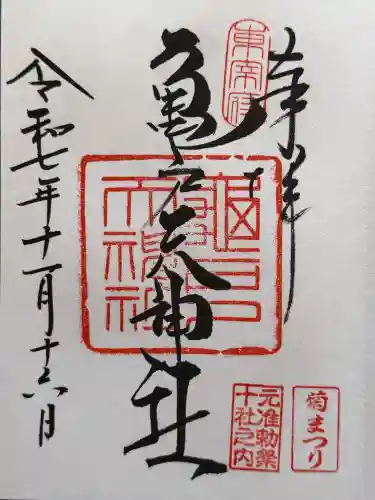 奉拝
東宰府
亀戸天神社
亀戸天神社
元准勅祭
十社之内
菊まつり
令和七年十一月十六日